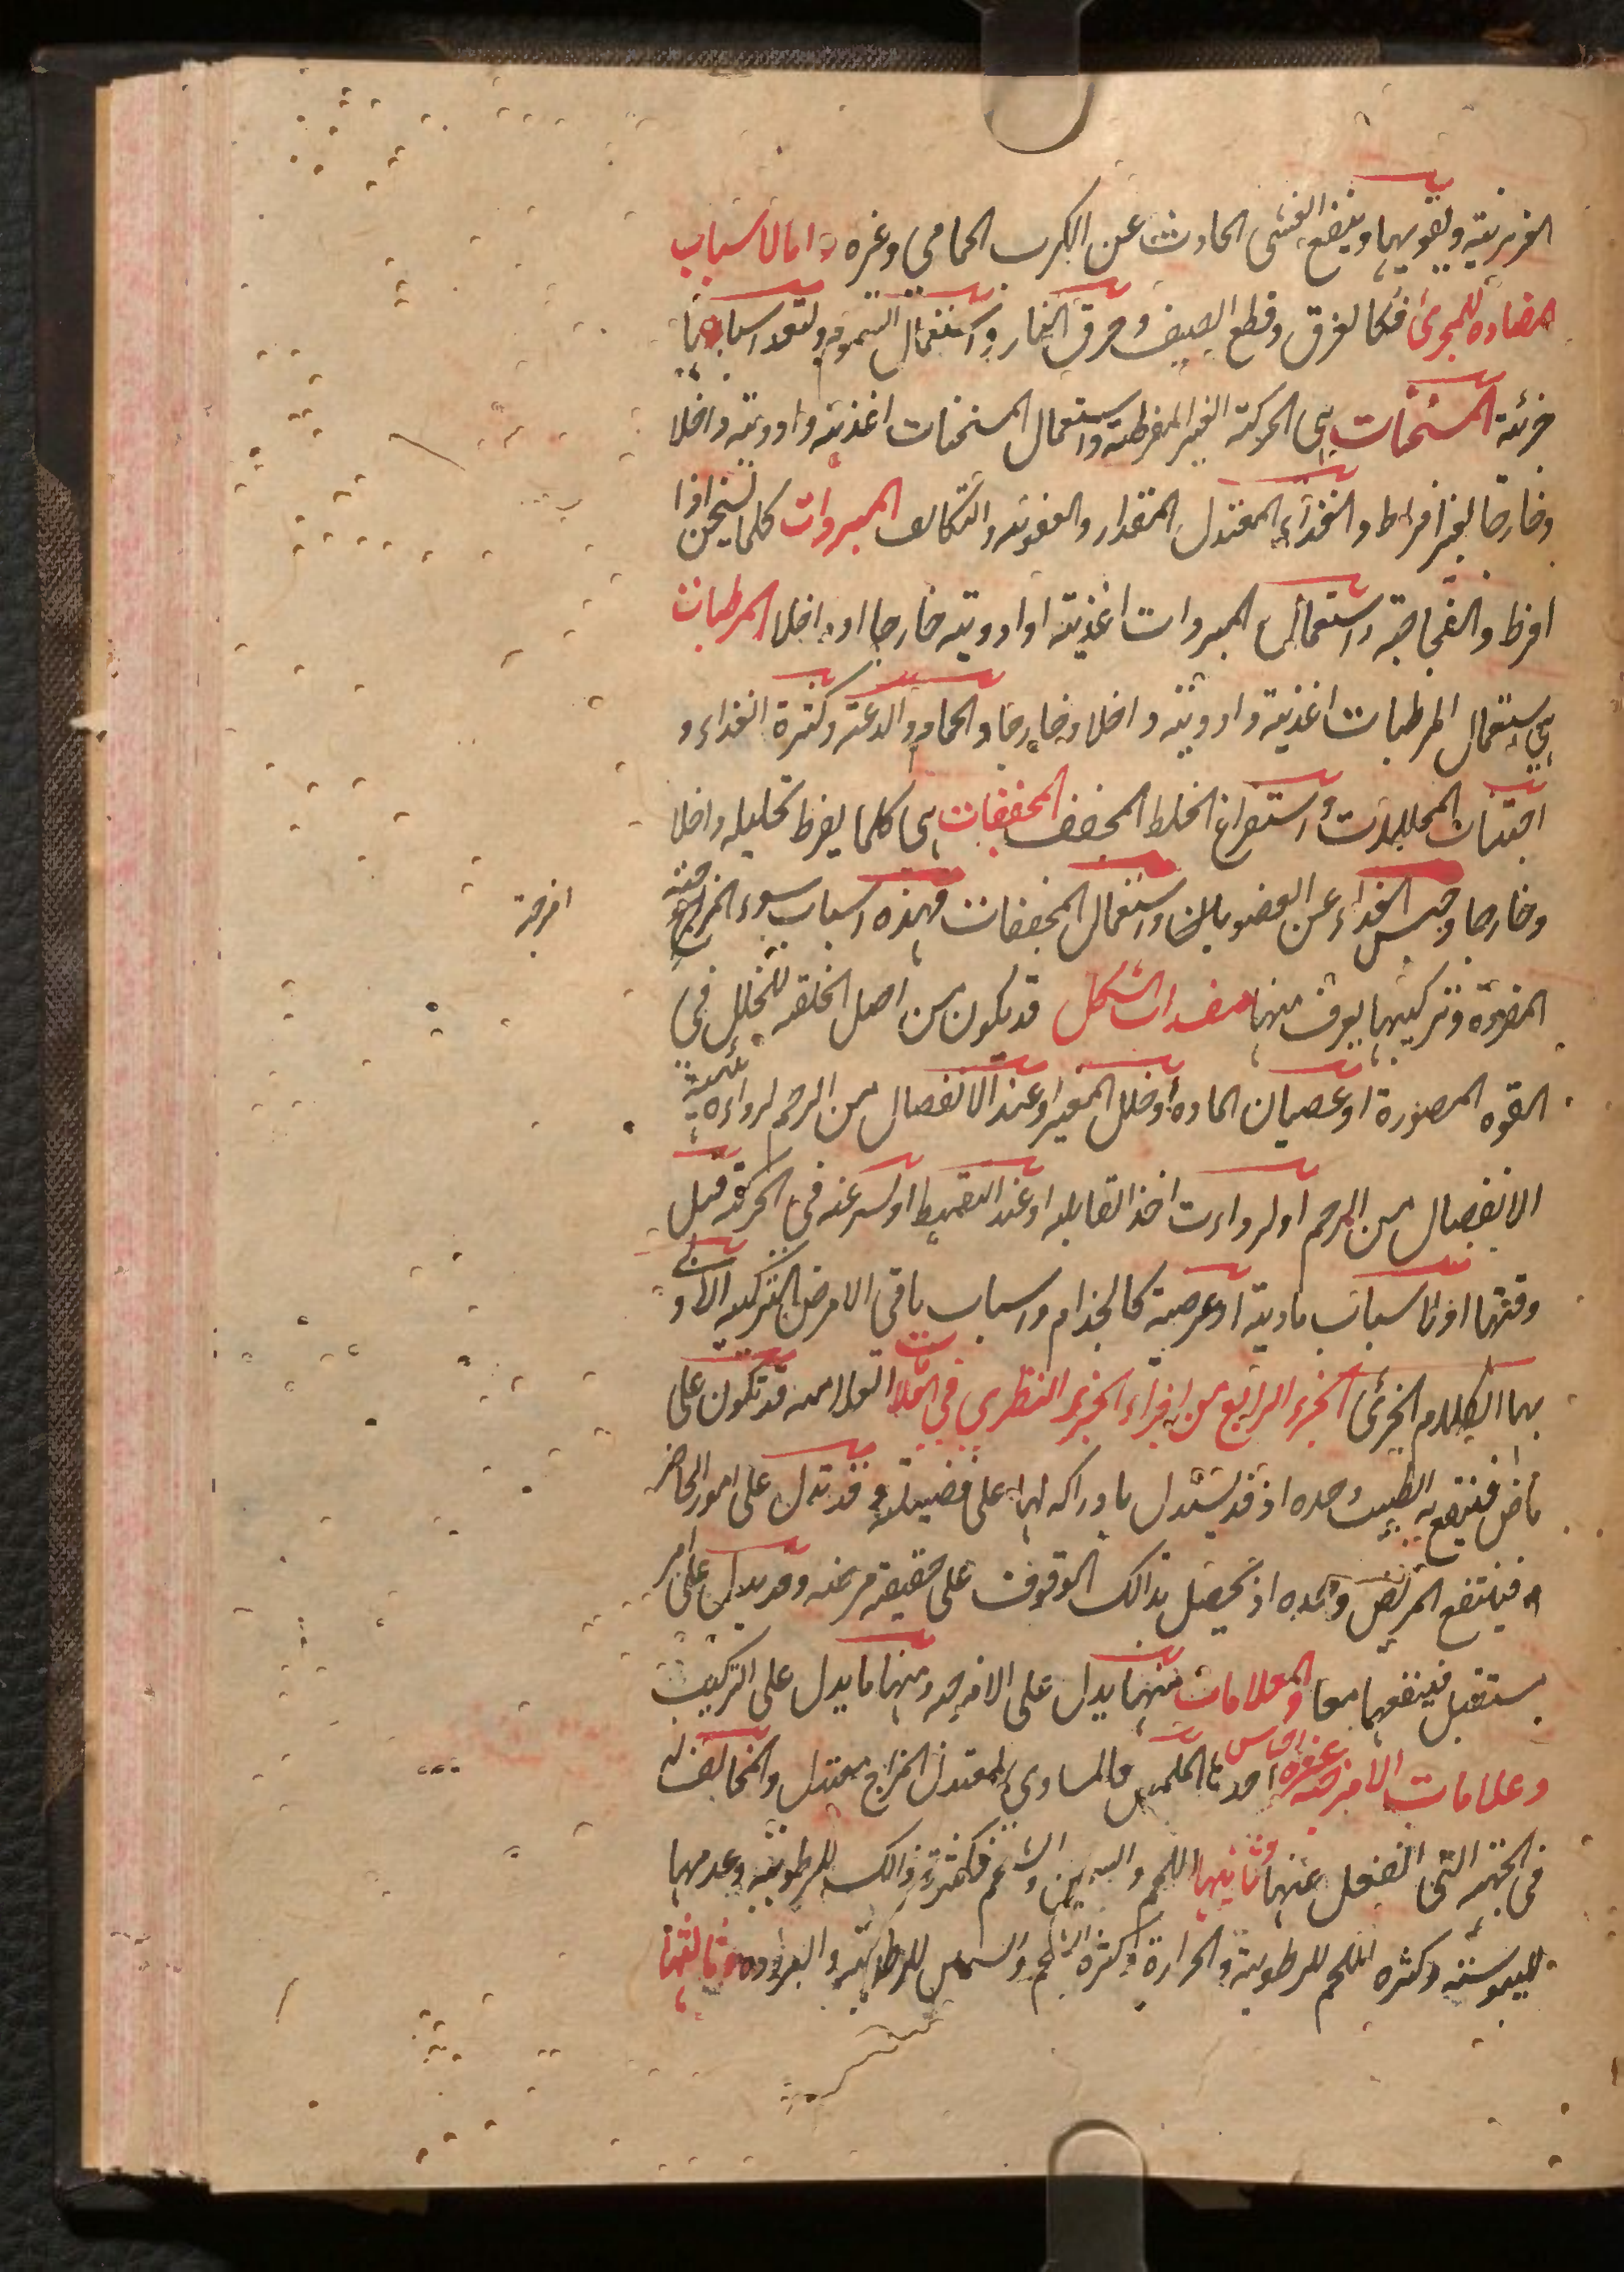 الغريزية ويقويها وينفع الغشى الحادث عن الكرب الحمامي وغيره واما الاسباب
المضاده للمجرى فكالغرق وقطع السيف وحرق النار واستعمال السموم ولنعد اسبابا
جزئية المسخنات هي الحركة الغير المفرطة واستعمال المسخنات اغذية وادوية داخلا
وخارجا بغير افراط والغذاء المعتدل المقدار والعفونة والتكاثف المبردات كلما يسخن اذا
افرط والفجاجة واستعمال المبردات اغذية او ادوية خارجا او داخلا المرطبات
هي استعمال المرطبات اغذية وادوية داخلا وخارجا والحمام والدعة وكثرة الغذاء و
اجتناب المحللات واستفراغ الخلط المجفف المجففات هي كلما يفرط تحليله داخلا
وخارجا وحبس الغذاء عن العضو واستعمال المجففات فهذه اسباب سوء المزاج
امزجة
المفردة وتركيبها يعرف منها مفسدات الشكل قد يكون من اصل الخلقه للخلل في
القوه المصورة او عصيان الماده او خلل المغير او عند الانفصال من الرحم لرداءة هيئة
الانفصال من الرحم او لرداءت اخذ القابله او عند التقميط او لسرعة في الحركة قبل
وقتها او لاسباب بادية او مرضية كالجذام واسباب باقى الامراض التركيبه الاولى
بها الكلام الجزئى الجزء الرابع من اجزاء الجزء النظري في قد تكون على
ماض فينتفع به الطبيب وحده اذ قد يستدل بادراكه لها على فضيلة وقد تدل على امور الحاضر
ه فينتفع المريض وحده اذ يحصل بذالك الوقوف على حقيقة مرضه وقد يدل على امر
مستقبل فينفعهما معا والعلامات منها يدل على الامزجه ومنها ما يدل على التركيب
وعلامات الامزجه عشرة اجناس احدها الملمس فالمساوى لمعتدل المزاج معتدل والمخالف له
فى الجهة التى انفعل عنها وثانيها اللحم والسمين والشحم فكثرة ذالك للرطوبة وعدمها
لليبوسته وكثره اللحم للرطوبة والحرارة وكثرة الشحم والسمن للرطوبة والبرودة وثالثها